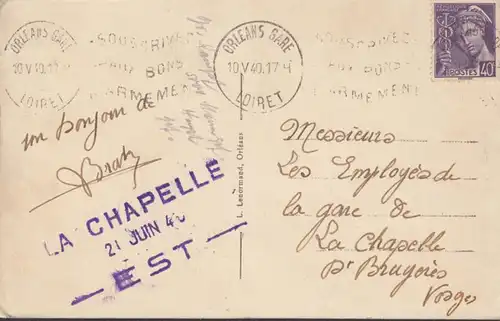 ORLEANS GARE
10 V 40.17 H
LOIRET
SOUSCRIVEZ
AUX BONS
D'ARMEMENT
ORLEANS GARE
10 V 40.17 H
LOIRET
POSTES
40
un bonjour de
LA CHAPELLE
21 JUIN 40
EST
L. Lenormand, Orléans
Messieurs
Les Employés de
la gare de
La Chapelle
Vosges